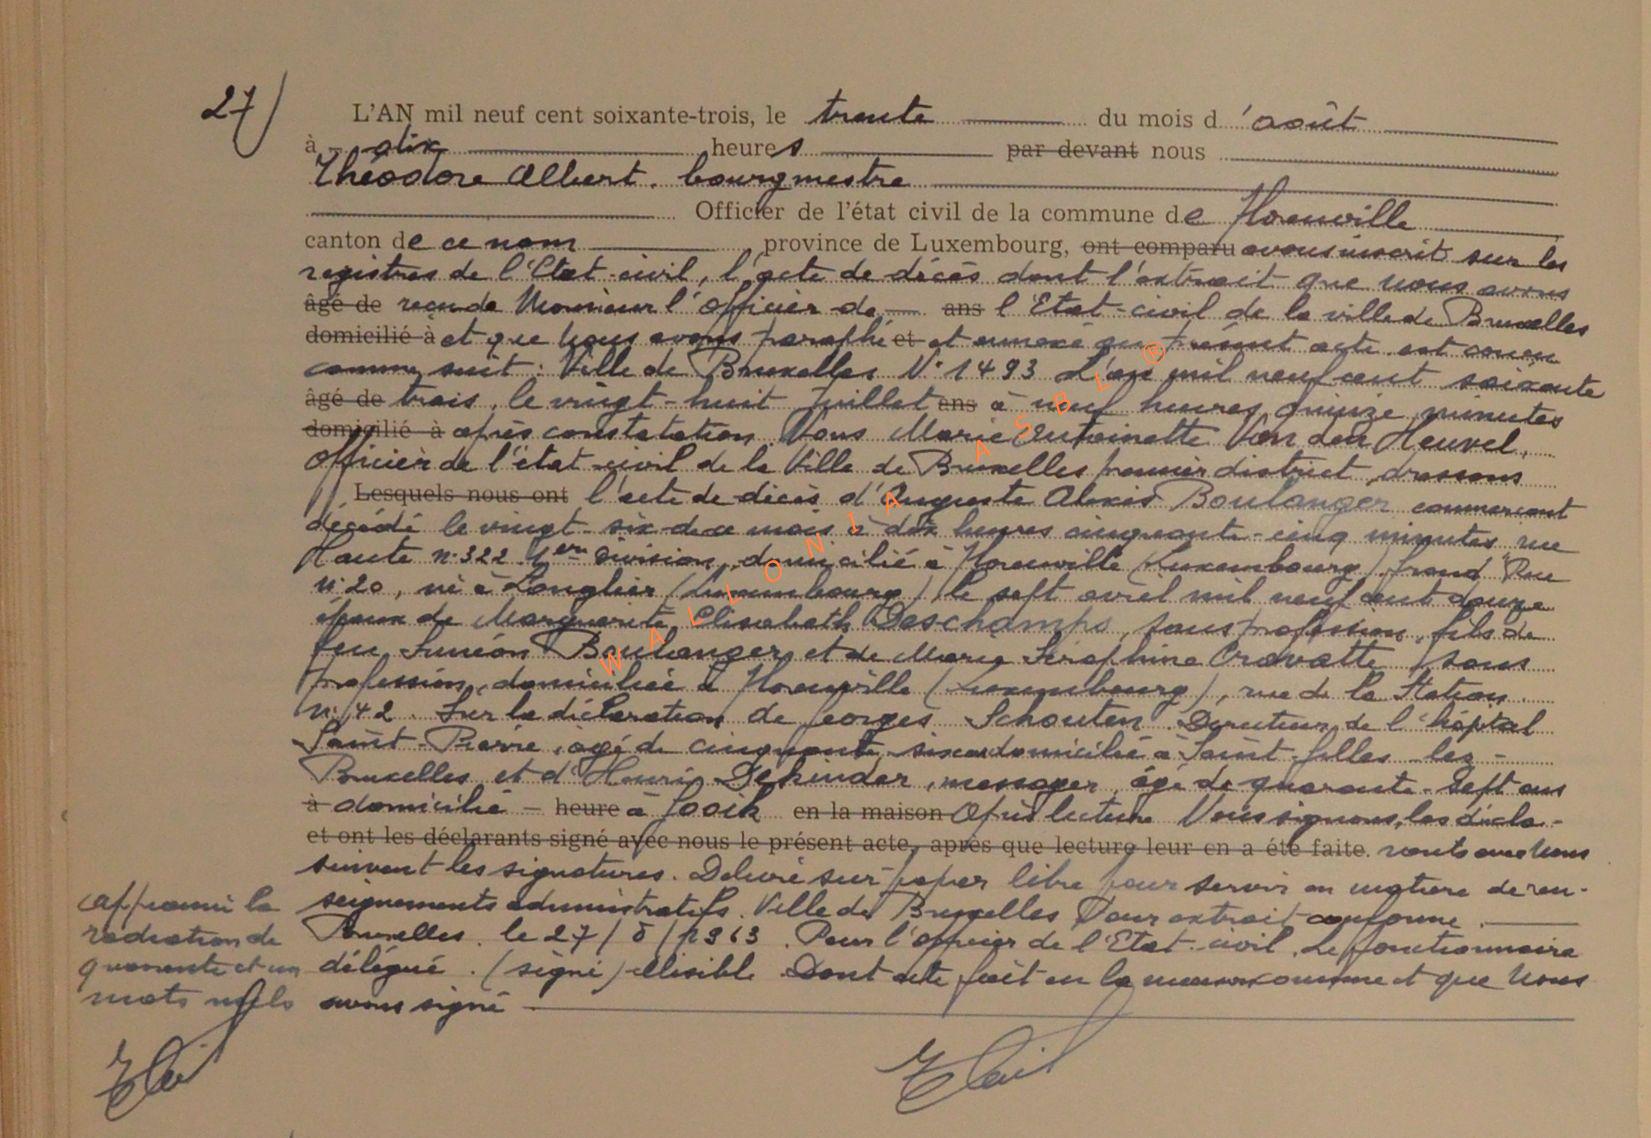 27)
L'AN mil neuf cent soixante-trois, le trente du mois d'août
à dix heures par devant nous
Théodore Albert, bourgmestre
Officier de l'état civil de la commune de Houville
canton de ce nom, province de Luxembourg, ont comparu avons inscrit sur les
registres de l'Etat-civil, l'acte de décès dont l'extrait que nous avons
âgé de reçu de Monsieur l'officier de ans l'Etat-civil de la ville de Bruxelles
domicilié à et que Nous avons paraphé et et annexé au présent acte est conçu
comme suit : Ville de Bruxelles N° 1493 L'an mil neuf cent soixante
âgé de trois, le vingt-huit Juillet ans à neuf heures quinze minutes
domicilié à après constatation Nous Marie Antoinette Van den Heuvel,
Officier de l'état civil de la Ville de Bruxelles premier district, dressons
Lesquels nous ont l'acte de décès d'Auguste Alexis Boulanger commerçant
décédé le vingt-six de ce mois à dix heures cinquante-cinq minutes, rue
Haute n° 322 1ère Division, domicilié à Houville (Luxembourg) Grand Rue
n° 20, né à Longlier (Luxembourg) le sept avril mil neuf cent douze
époux de Marguerite Elisabeth Deschamps, sans profession, fils de
feu Siméon Boulanger et de Marie Séraphine Cravatte, sans
profession, domiciliée à Houville (Luxembourg), rue de la Station
n° 42. Sur la déclaration de Georges Schouten Directeur de l'hôpital
Saint-Pierre, âgé de cinquante-six ans domicilié à Saint-Gilles-lez-
Bruxelles et d'Henri Dehinder, messager, âgé de quarante-sept ans
à domicilié heure à Gooik en la maison Après lecture Nous signons, les décla-
et ont les déclarants signé avec nous le présent acte, après que lecture leur en a été faite. rants avec Nous
suivent les signatures. Délivré sur papier libre pour servir en matière de ren-
seignements administratifs. Ville de Bruxelles Pour extrait conforme
Bruxelles, le 27/8/1963. Pour l'officier de l'Etat-civil, Le fonctionnaire
délégué. (signé) illisible. Dont acte fait en la maison commune et que Nous
avons signé
Approuvé la
radiation de
quarante et un
mots nuls
WALLONIA ASBL ®